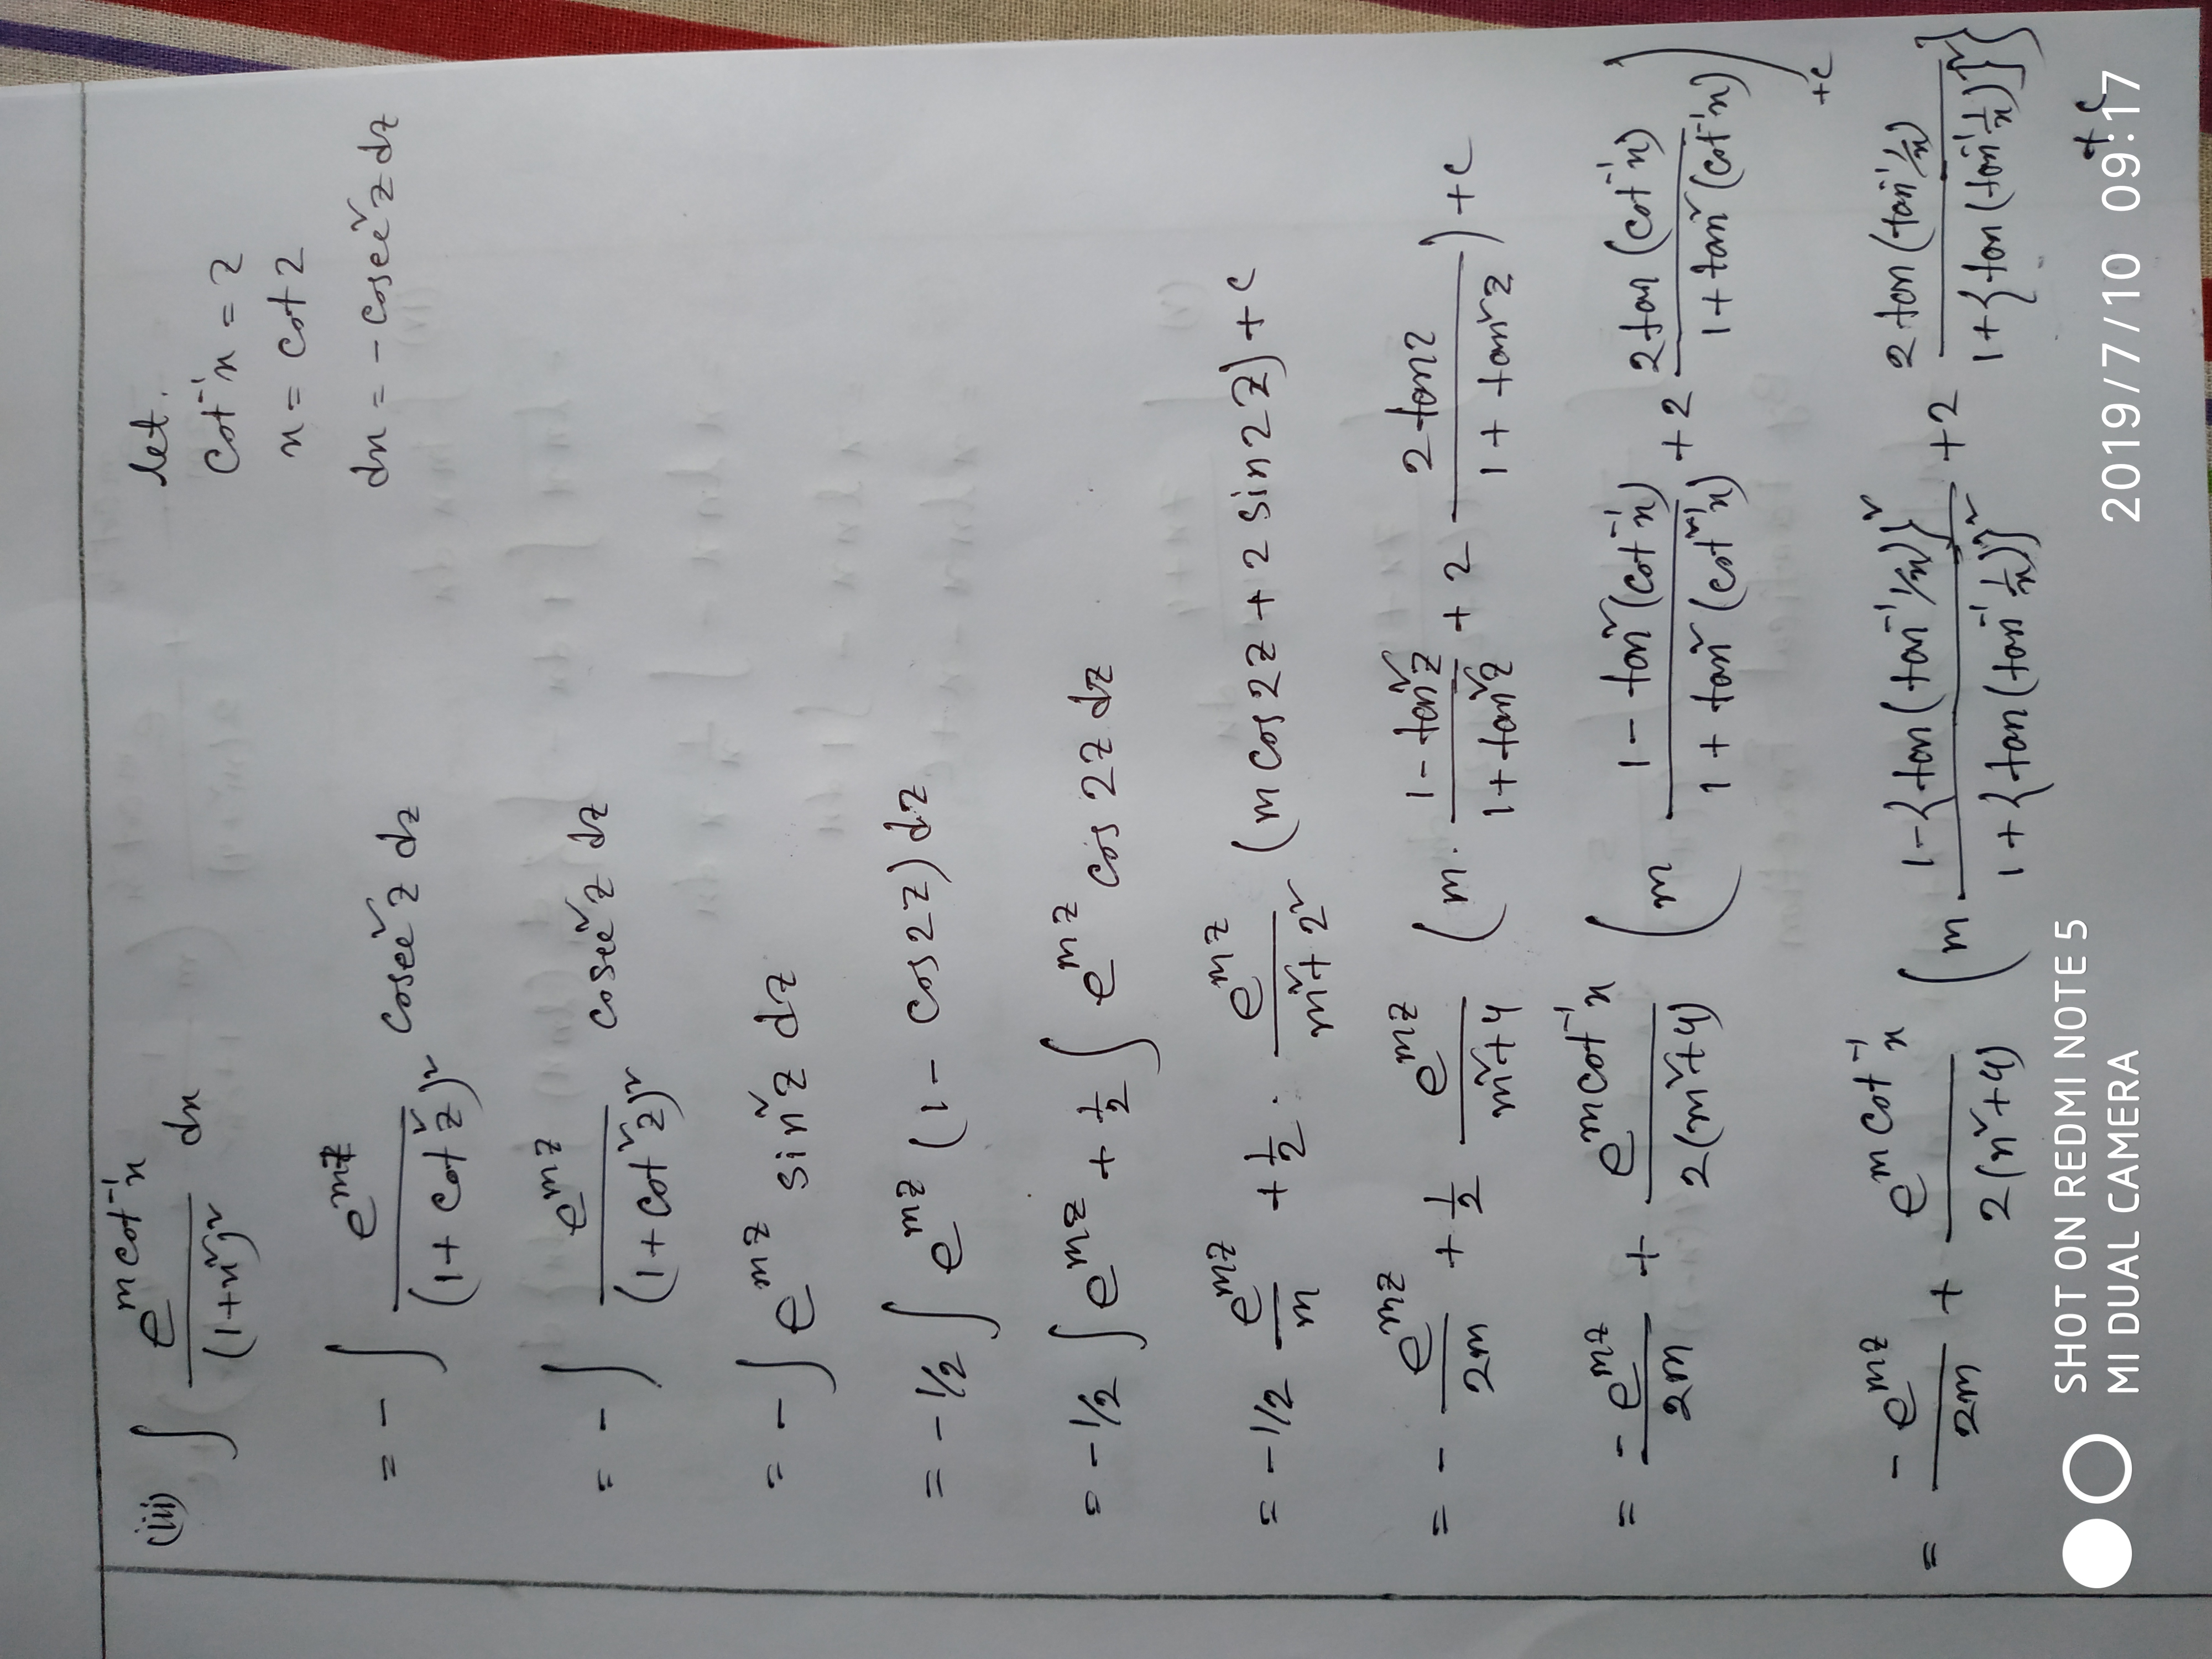 (iii) ∫ e^{m cot⁻¹x} / (1+x²)² dx
let.
cot⁻¹x = z
x = cot z
dx = - cosec²z dz
= - ∫ e^{mz} / (1 + cot²z)² cosec²z dz
= - ∫ e^{mz} / (1 + cot²z)² cosec²z dz
= - ∫ e^{mz} sin²z dz
= -1/2 ∫ e^{mz} (1 - cos2z) dz
= -1/2 ∫ e^{mz} + 1/2 ∫ e^{mz} cos 2z dz
= -1/2 e^{mz}/m + 1/2 · e^{mz} / (m² + 2²) (m cos2z + 2 sin2z) + c
= - e^{mz}/2m + 1/2 e^{mz} / (m²+4) (m · (1 - tan²z)/(1 + tan²z) + 2 (2 tanz)/(1 + tan²z)) + c
= -e^{mz}/2m + e^{m cot⁻¹x} / 2(m²+4) (m (1 - tan²(cot⁻¹x))/(1 + tan²(cot⁻¹x)) + 2 (2 tan (cot⁻¹x))/(1 + tan²(cot⁻¹x))) + c
= -e^{mz}/2m + e^{m cot⁻¹x} / 2(x²+4) (m (1 - {tan(tan⁻¹1/x)}²)/(1 + {tan(tan⁻¹ 1/x)}²) + 2 (2 tan(tan⁻¹1/x))/(1 + {tan(tan⁻¹ 1/x)}²)}
+ c
SHOT ON REDMI NOTE 5
MI DUAL CAMERA
2019/7/10 09:17